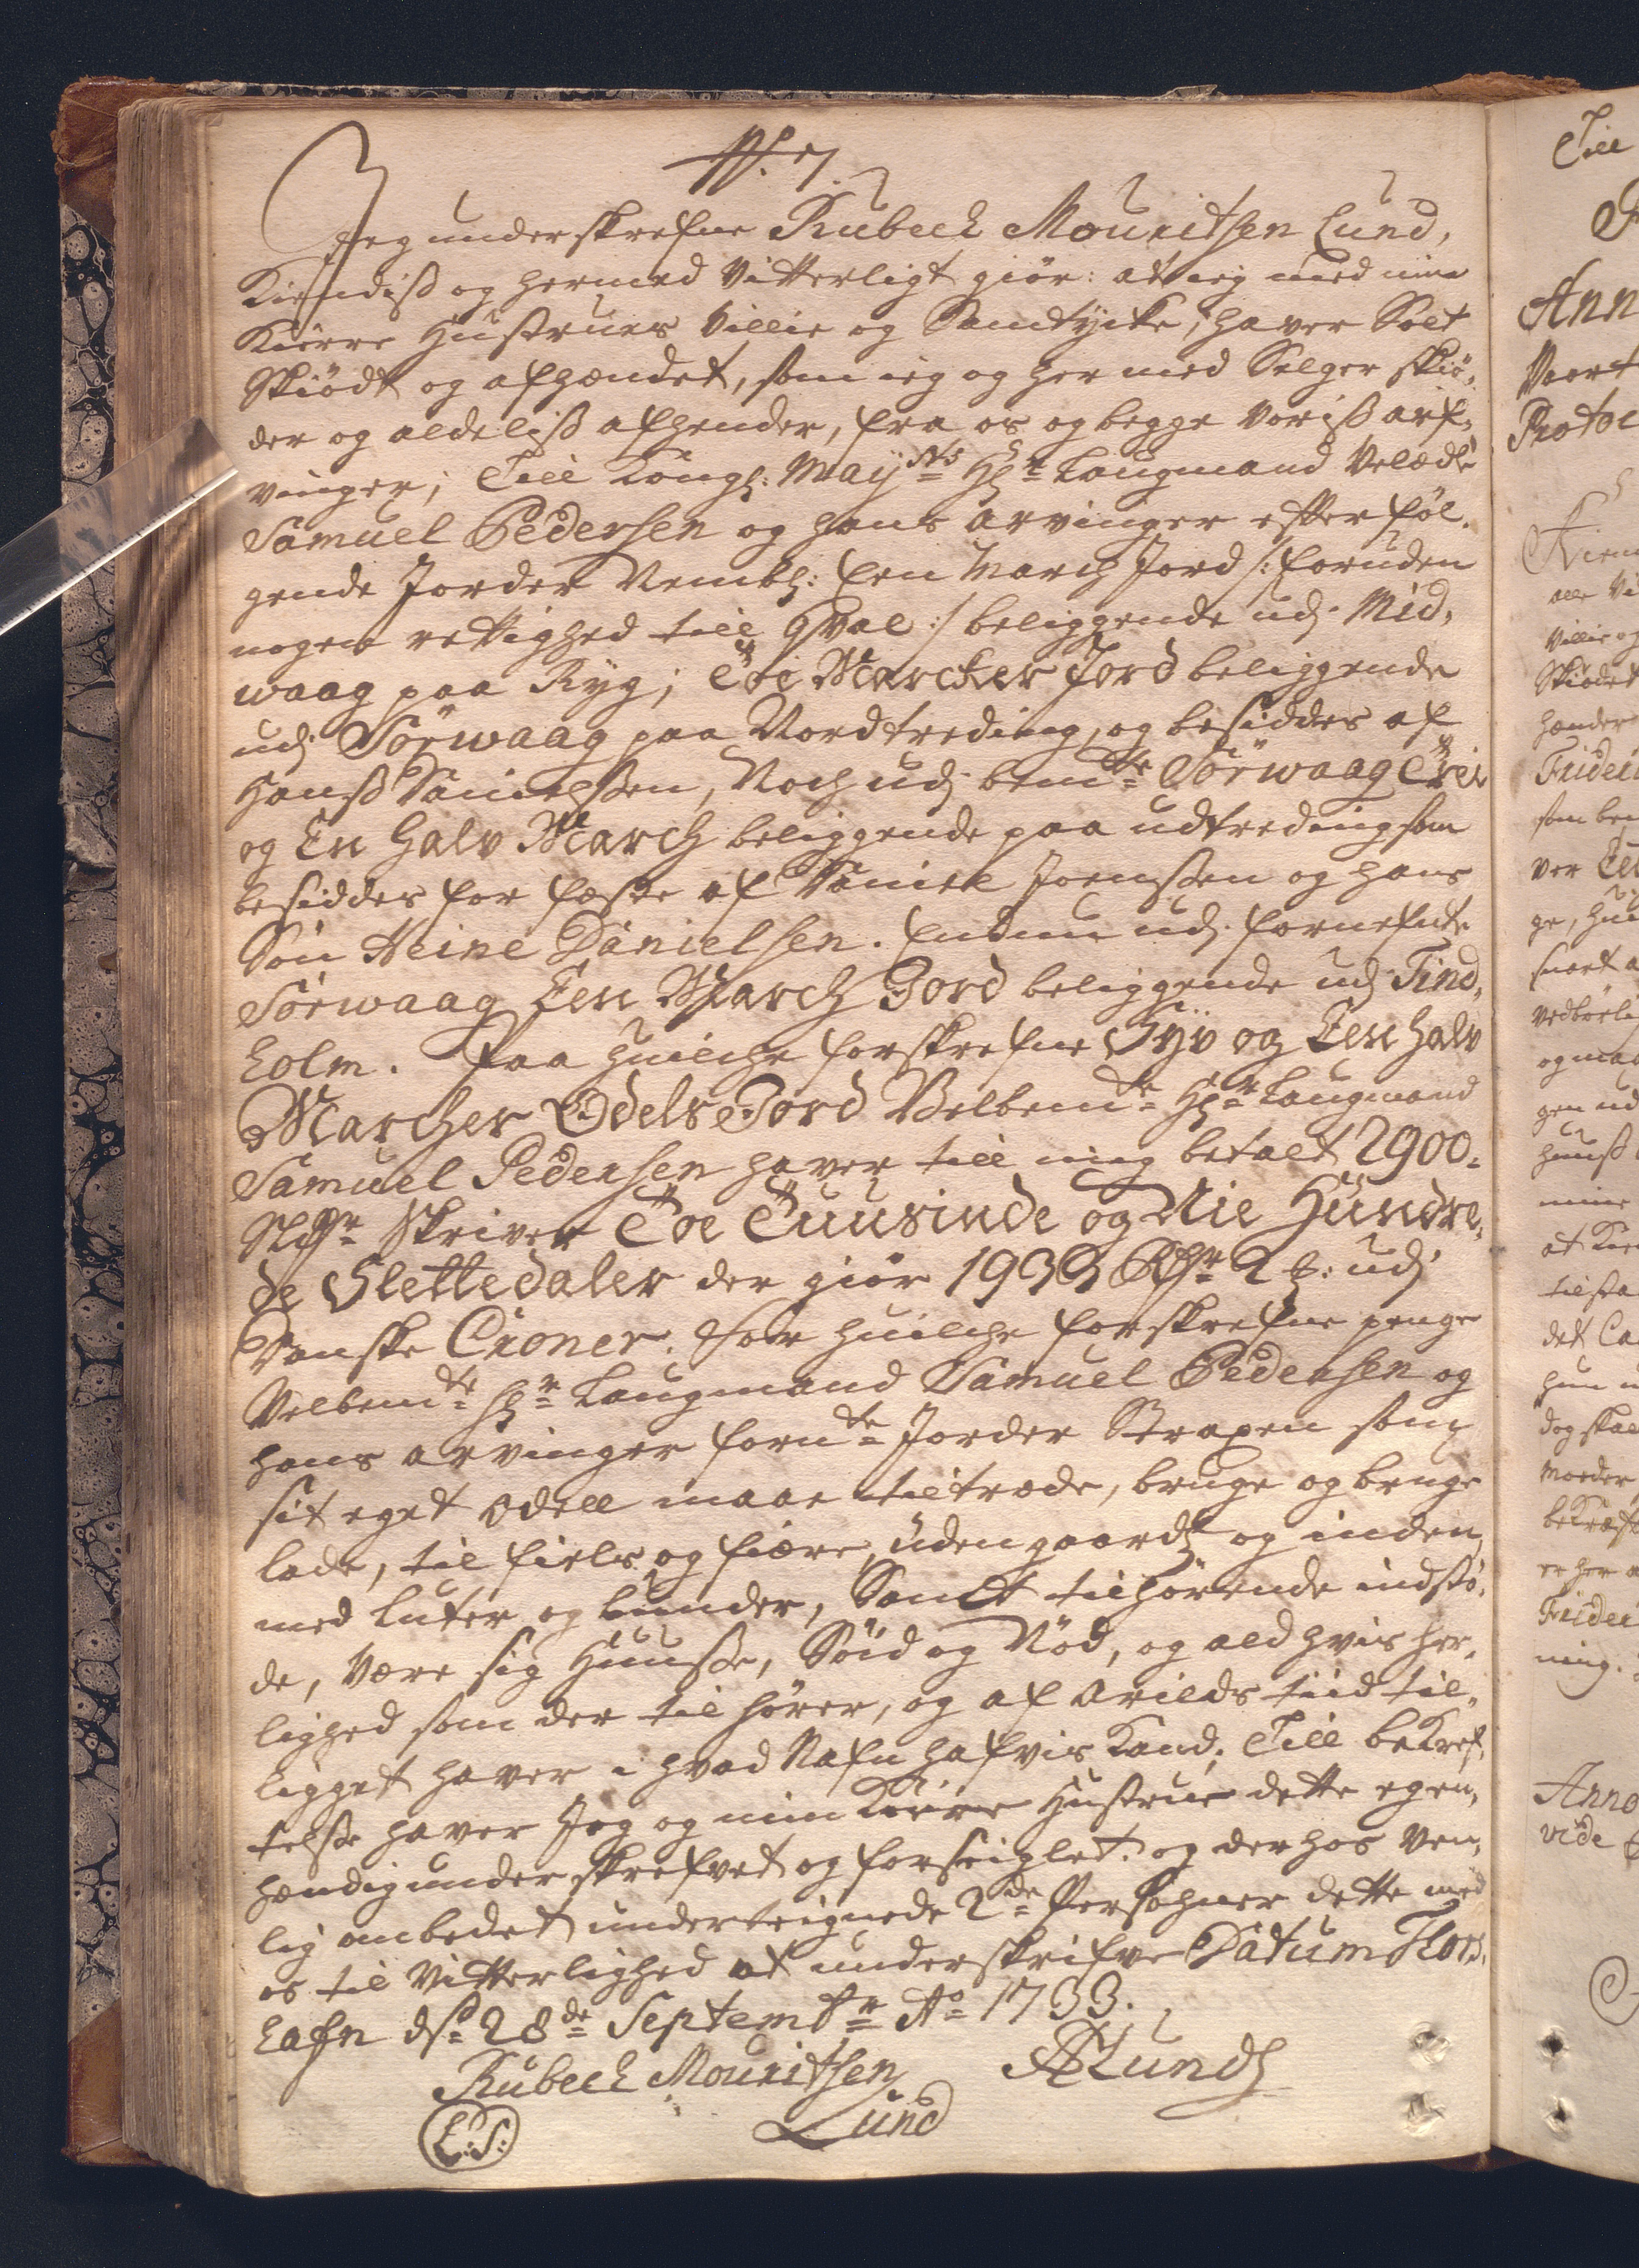 Jeg underskrefne Rubech Mouritsen Lund,
Kiendiss og hermed Vitterligt giör: at ieg med min
Kiære Hustrues Villie og Samtycke, haver Solt
Skiödt og afhændet, som ieg og her med Selger skiö,
der og aldeliss afhender, fra os og begge voriss arf,
vinger; Till Kongl: Mayts Hr Laugmand Velædle
Samuel Pedersen og hans arvinger efterföl,
gende Jorder Nembl: Een March Jord /: foruden
nogen rettighed till Hval :/ beliggende udj Mid,
waag paa Ryg; Toe Marcker Jord beliggende
udj Sörwaag paa Nordtreding, og besiddes af
Hanss Danielssen, Noch udj bemte Sörwaag Trei
og En halv March beliggende paa udtreding som
besiddes for fæste af Daniel Joenssen og hans
Sön Heine Danielsen. Endnu udj fornefnte
Sörwaag Een March Jord beliggende udj Tind,
holm. Paa huilche forskrefne Syv og Een halv
Marcher Odels Jord Velbemte Hr Laugmand
Samuel Pedersen haver till mig betalt 2900.
Sldr skriver Toe Tuusinde og Nie Hundre,
de Slettedaler der giör 1933 Rdr 2 : udj
Danske Croner. For huilche forskrefne penge
Velbemte Hr Laugmand Samuel Pedersen og
hans arvinger fornte Jorder Straxen som
sit eget Odell maae tiltræde, bruge og bruge
lade, til fields og fiære, uden gaards og inden
med luter og lunder, Samt tilhörende indstö,
de, være sig Huusse, Söid og Nöd, og ald hvis her,
lighed som der til hörer, og af Arilds tiid til,
ligget haver i hvad Nafn hafvis Kand. Till bekref,
telsse haver Jeg og min Kiære Hustrue dette egen,
hændig underskrefvet og forseiglet. og derhos ven,
lig ombedet underteignede 2de Persohner dette med
os til Vitterlighed at underskrifve Datum Thors,
hafn d. 28de Septembr Ao 1733.
Rubech Mouritsen Lund
L:S: